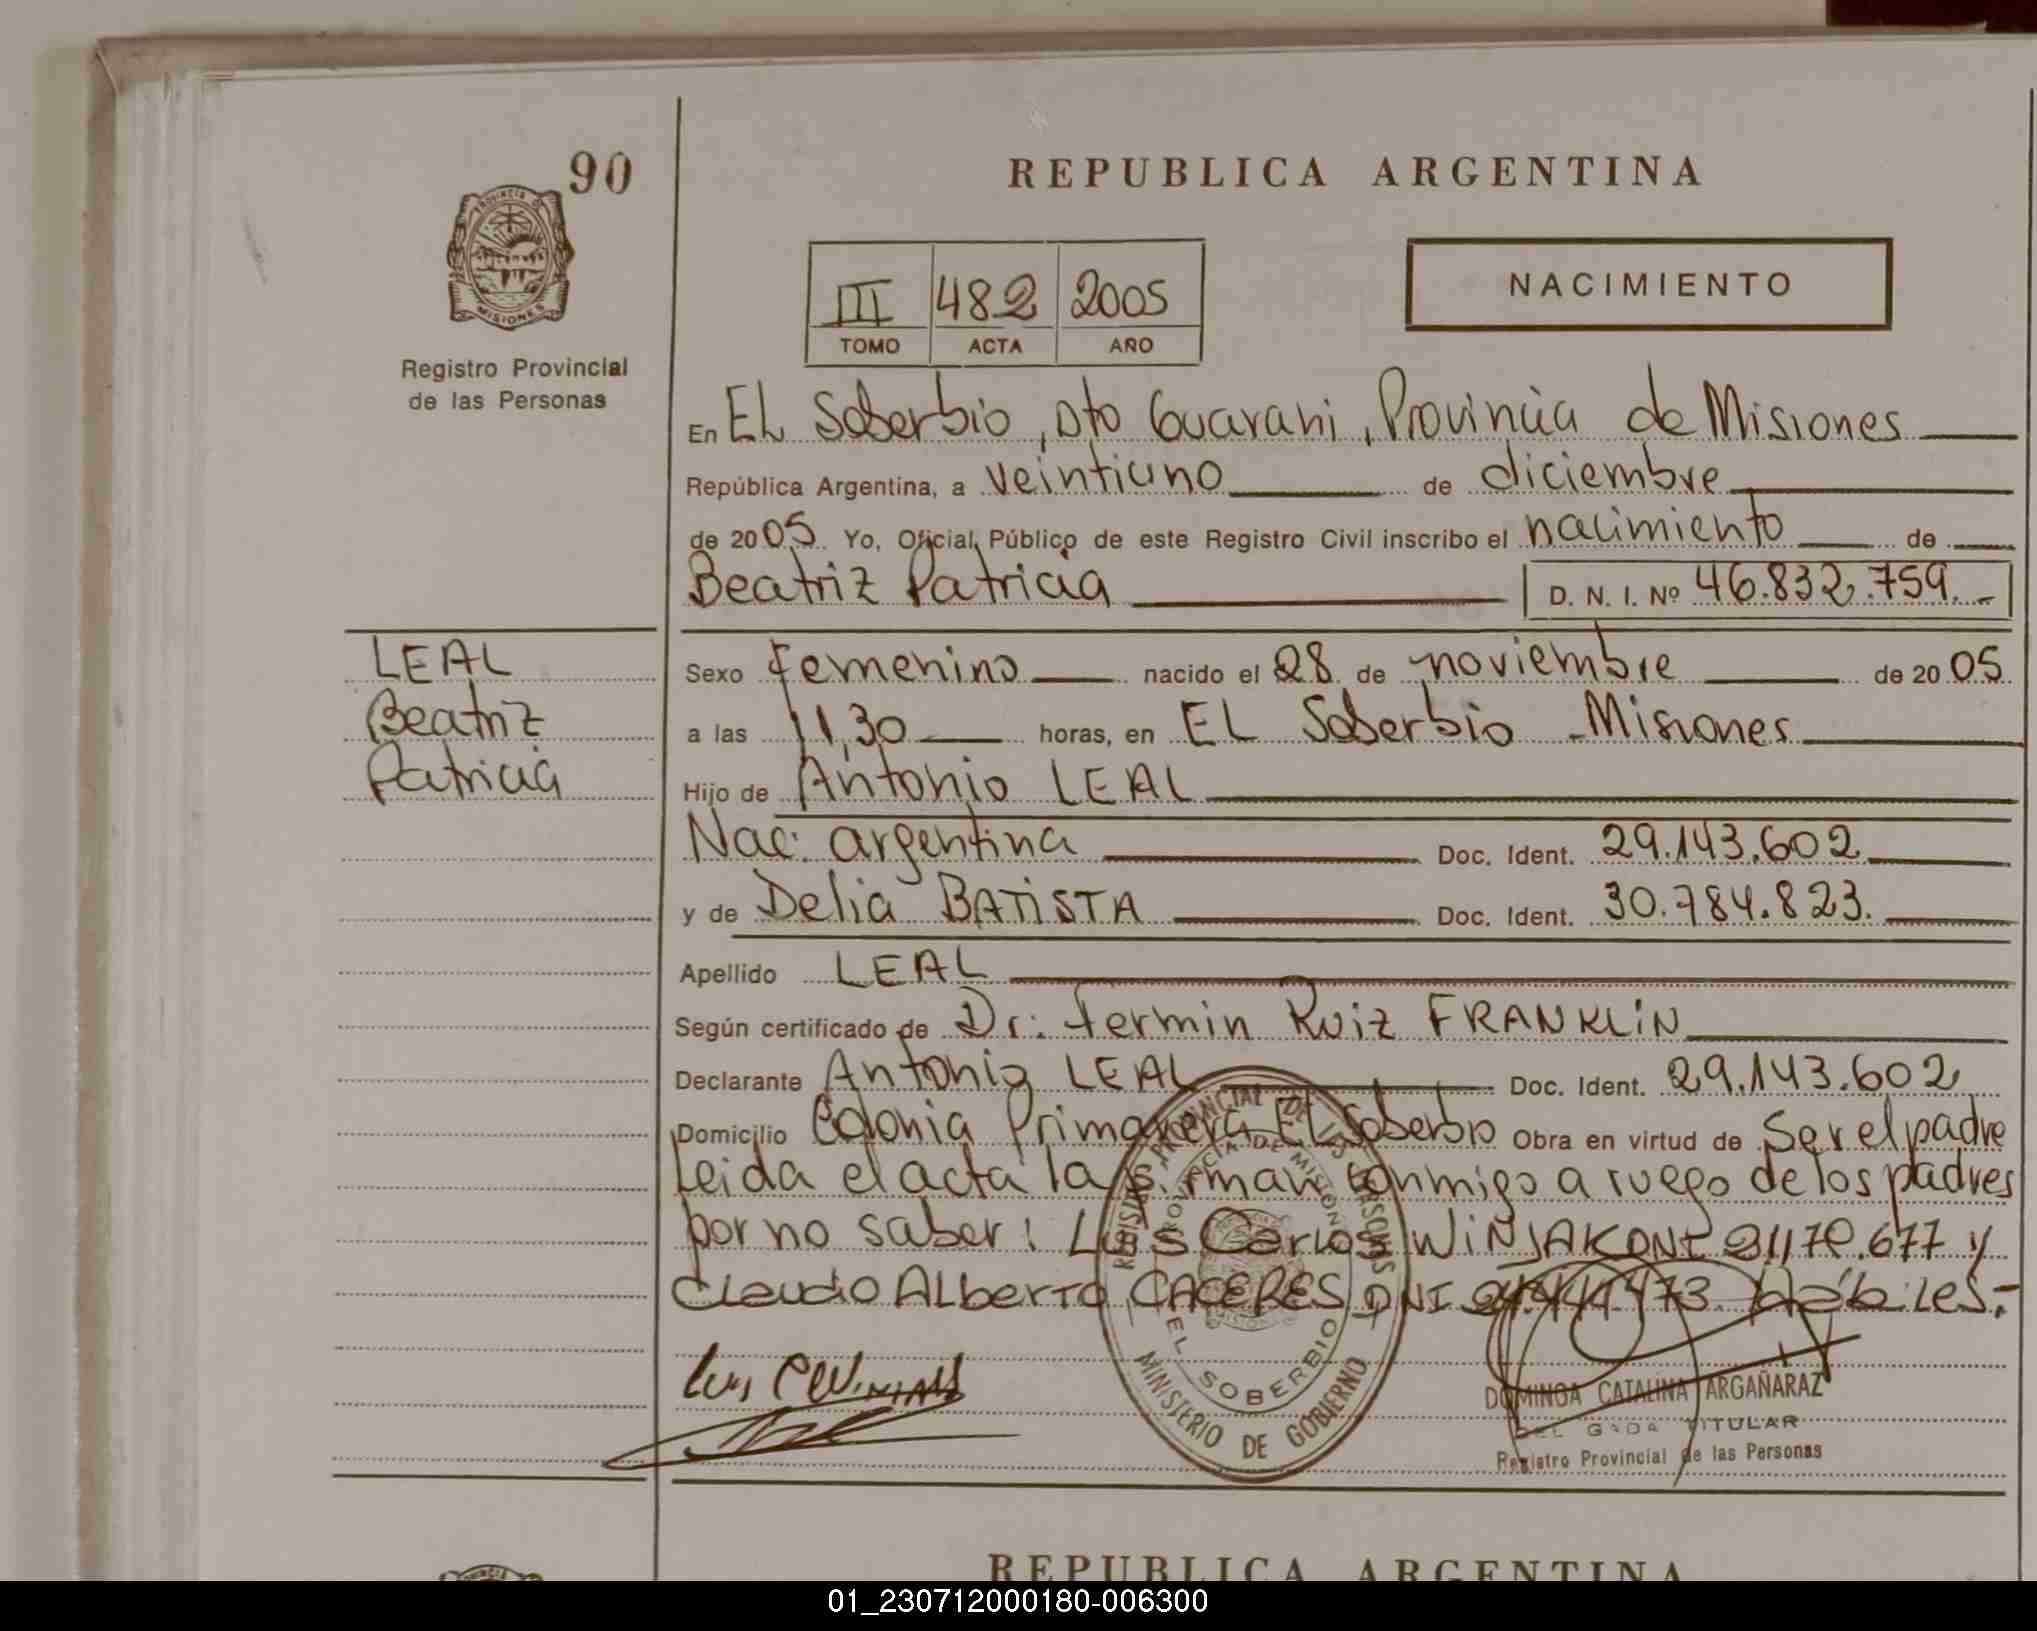 90
PROVINCIA DE
MISIONES
Registro Provincial
de las Personas
REPUBLICA ARGENTINA
III 482 2005
TOMO ACTA AÑO
NACIMIENTO
En EL Soberbio, Dto Guarani, Provincia de Misiones
República Argentina, a veintiuno de diciembre
de 2005 Yo, Oficial Público de este Registro Civil inscribo el nacimiento de
Beatriz Patricia D. N. I. Nº 46.832.759.-
LEAL
Beatriz
Patricia
Sexo femenino nacido el 28 de noviembre de 2005
a las 11,30 horas, en EL Soberbio - Misiones
Hijo de Antonio LEAL
Nac: argentina Doc. Ident. 29.143.602
y de Delia BATISTA Doc. Ident. 30.784.823.
Apellido LEAL
Según certificado de Dr: Fermin Ruiz FRANKLIN
Declarante Antonio LEAL Doc. Ident. 29.143.602
Domicilio Colonia Primavera EL Soberbio Obra en virtud de Ser el padre
Leida el acta la firman conmigo a ruego de los padres
por no saber: Luis Carlos y
Claudio ALberto CACERES DNI Hábiles.-
REGISTRO PROVINCIAL DE LAS PERSONAS
PROVINCIA DE MISIONES
EL SOBERBIO
MINISTERIO DE GOBIERNO
DOMINGA CATALINA ARGAÑARAZ
DELEGADA TITULAR
Registro Provincial de las Personas
REPUBLICA ARGENTINA
01_230712000180-006300